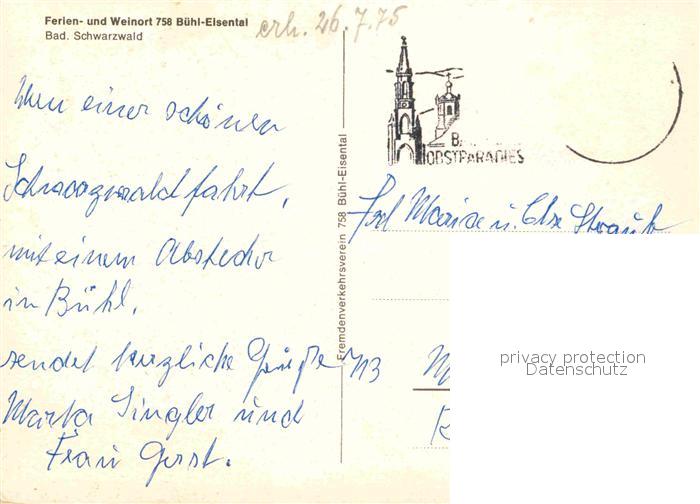 Ferien- und Weinort 758 Bühl-Eisental
Bad. Schwarzwald
erh. 26.7.75
einer schönen
Schwarzwaldfahrt,
mit einem Abstecher
in Bühl,
sendet herzliche Grüße
Marta Singler und
Frau Gerst.
Fremdenverkehrsverein 758 Bühl-Eisental
OBSTPARADIES
Frl Maria u. Else Straub
privacy protection
Datenschutz